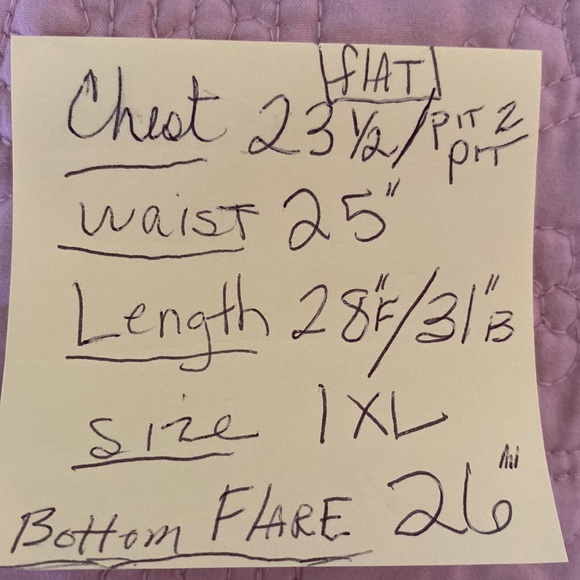 flAT
Chest 23 1/2 / PIT 2 PIT
waist 25"
Length 28"F/31"B
Size 1XL
Bottom FlARE 26"